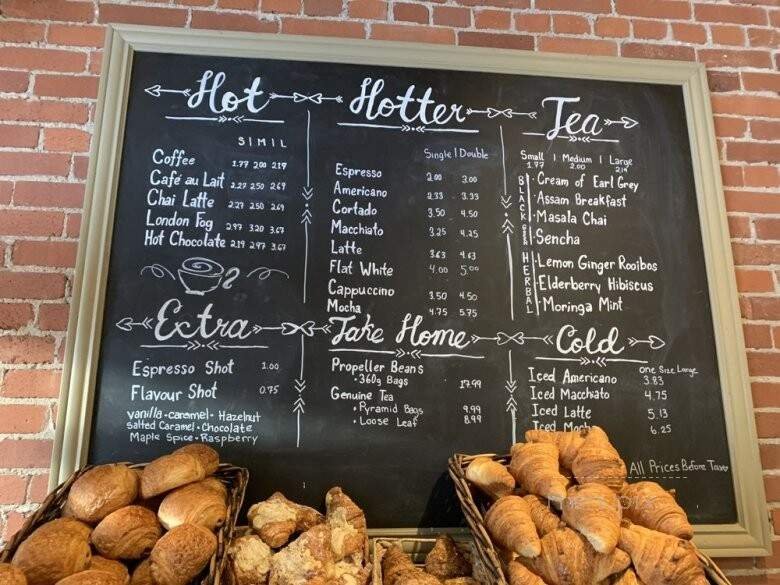 Hot
S | M | L
Coffee 1.77 2.00 2.19
Café au Lait 2.27 2.50 2.69
Chai Latte 2.27 2.50 2.69
London Fog 2.97 3.20 3.67
Hot Chocolate 2.19 2.97 3.67
Hotter
Single | Double
Espresso 2.00 3.00
Americano 2.33 3.33
Cortado 3.50 4.50
Macchiato 3.25 4.25
Latte 3.63 4.63
Flat White 4.00 5.00
Cappuccino 3.50 4.50
Mocha 4.75 5.75
Tea
Small | Medium | Large
1.77 2.00 2.19
BLACK
Cream of Earl Grey
Assam Breakfast
Masala Chai
Sencha
HERBAL
Lemon Ginger Rooibos
Elderberry Hibiscus
Moringa Mint
Extra
Espresso Shot 1.00
Flavour Shot 0.75
vanilla · caramel · Hazelnut
salted Caramel · Chocolate
Maple Spice · Raspberry
Take Home
Propeller Beans
· 360g Bags 17.99
Genuine Tea
· Pyramid Bags 9.99
· Loose Leaf 8.99
Cold
one Size Large
Iced Americano 3.83
Iced Macchiato 4.75
Iced Latte 5.13
Iced Mocha 6.25
All Prices Before Taxes